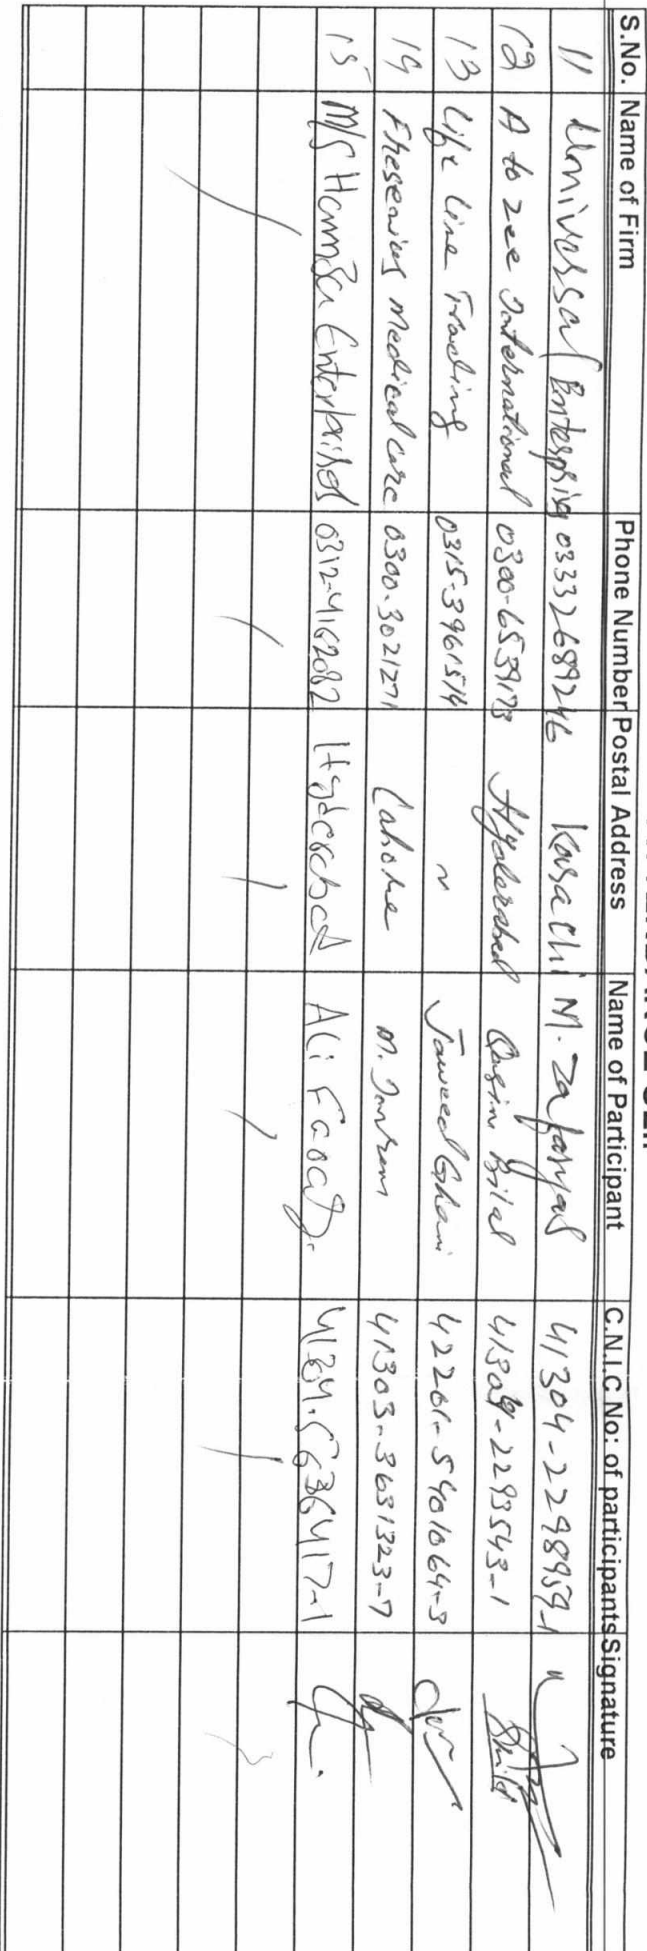 S.No. Name of Firm Phone Number Postal Address Name of Participant C.N.I.C No: of participants Signature
11 Universal Enterprises 03332689246 Karachi M. Zafaryab 41304-2298959-1
12 A to zee International 0300-6539173 Hyderabad Qasim Bilal 41304-2293543-1
13 Life Line Trading 0315-3961514 " Jaweed Ghani 42201-5401064-3
14 Fhesenius Medical care 0300-3021271 Lahore M. Imran 41303-3631323-7
15 M/S Hamza Enterprises 0312-4162082 Hyderabad Ali Farooq. 41304-5636417-1